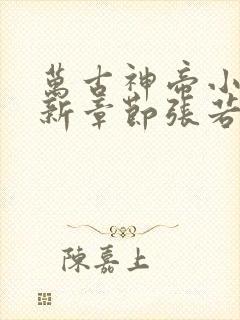 萬古神帝小
新章節張若
陳嘉上